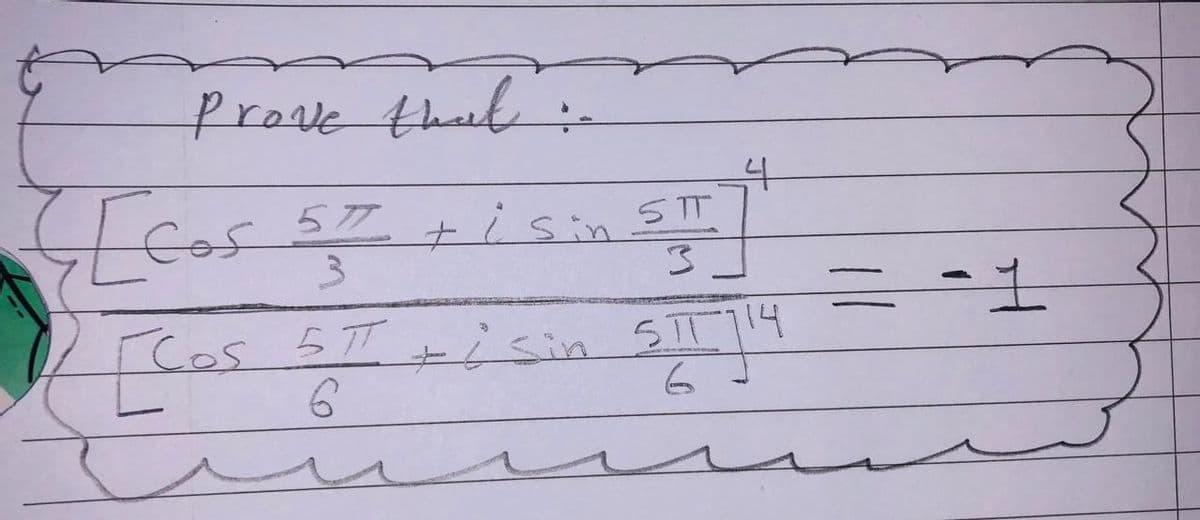 Prove that :-
[Cos 5π/3 + i sin 5π/3]^4 / [Cos 5π/6 + i sin 5π/6]^14 = -1